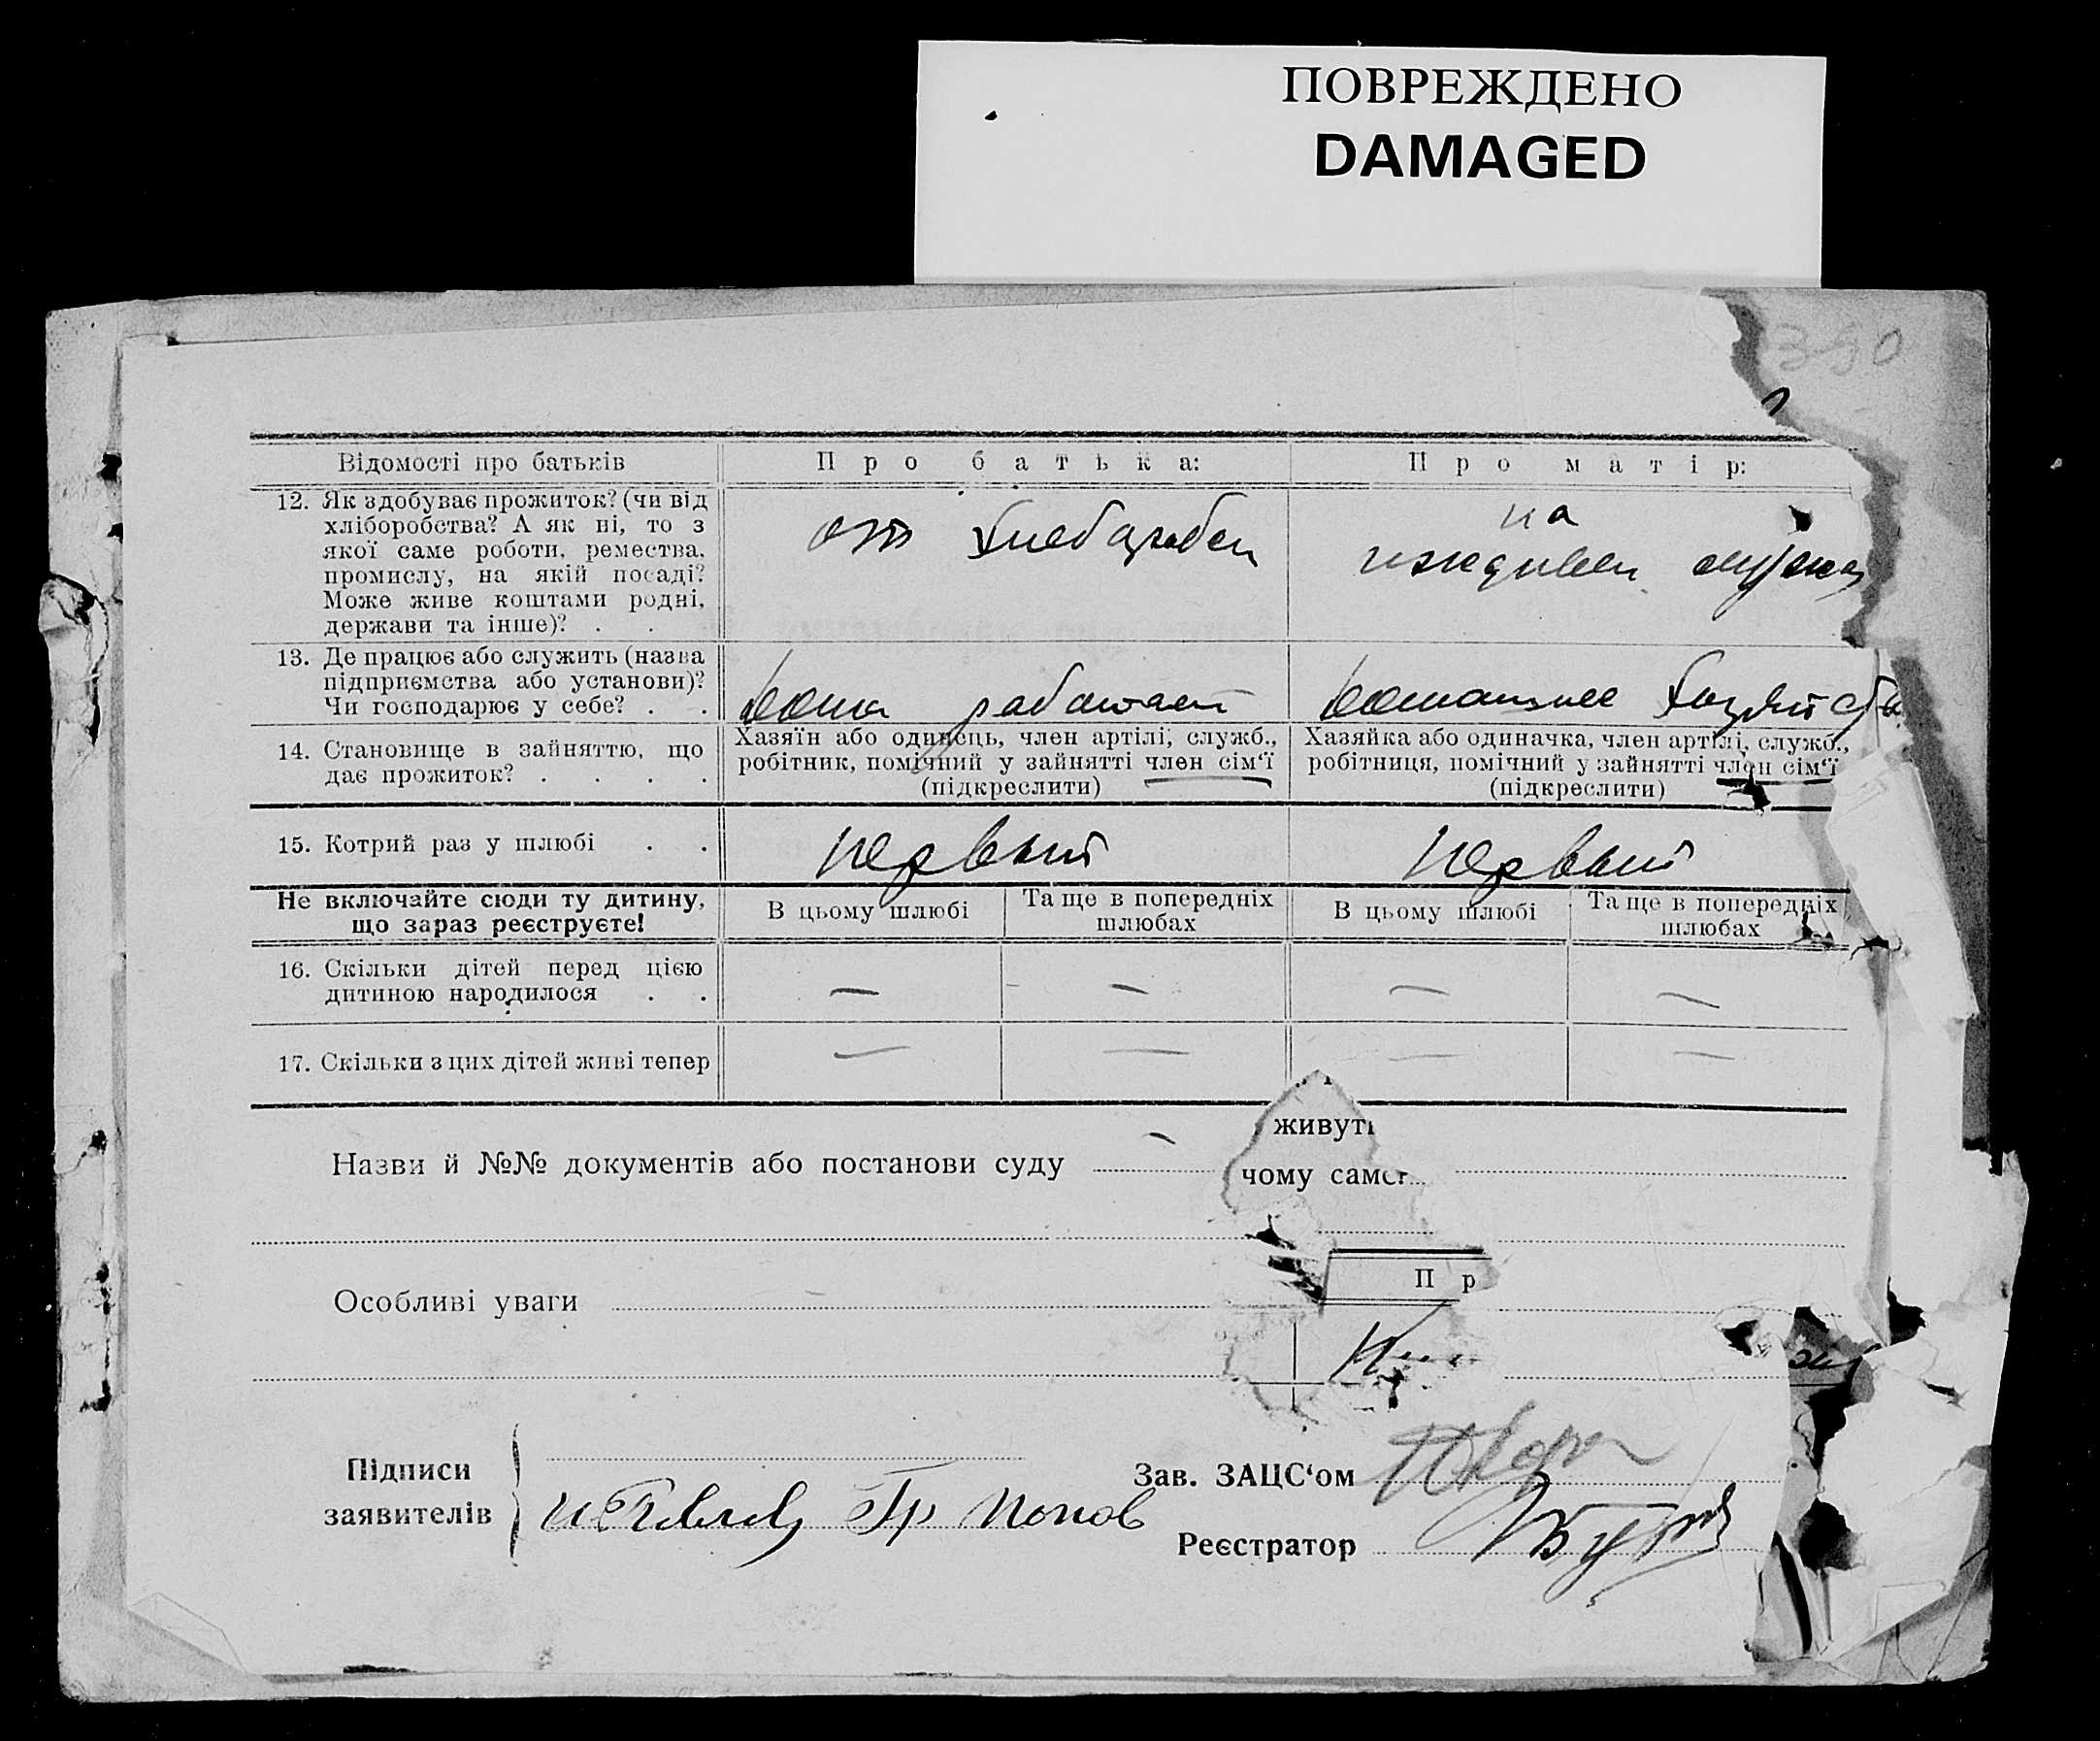 ПОВРЕЖДЕНО
DAMAGED
390
Відомості про батьків
Про батька:
Про матір:
12. Як здобуває прожиток? (чи від
хліборобства? А як ні, то з
якої саме роботи, ремества,
промислу, на якій посаді?
Може живе коштами родні,
держави та інше)? . .
от
на
13. Де працює або служить (назва
підприємства або установи)?
Чи господарює у себе? . .
дома работает
домашнее
14. Становище в зайняттю, що
дає прожиток? . . . .
Хазяїн або одинець, член артілі, служб.,
робітник, помічний у зайнятті член сім‘ї
(підкреслити)
Хазяйка або одиначка, член артілі, служб.,
робітниця, помічний у зайнятті член сім‘ї
(підкреслити)
15. Котрий раз у шлюбі . .
первый
первый
Не включайте сюди ту дитину,
що зараз реєструєте!
В цьому шлюбі
Та ще в попередніх
шлюбах
В цьому шлюбі
Та ще в попередніх
шлюбах
16. Скільки дітей перед цією
дитиною народилося . .
— — — —
17. Скільки з цих дітей живі тепер
— — — —
живуть
Назви й №№ документів або постанови суду —
чому саме
П р
Особливі уваги
Підписи
заявителів
Гр Попов
Зав. ЗАЦС‘ом
Реєстратор